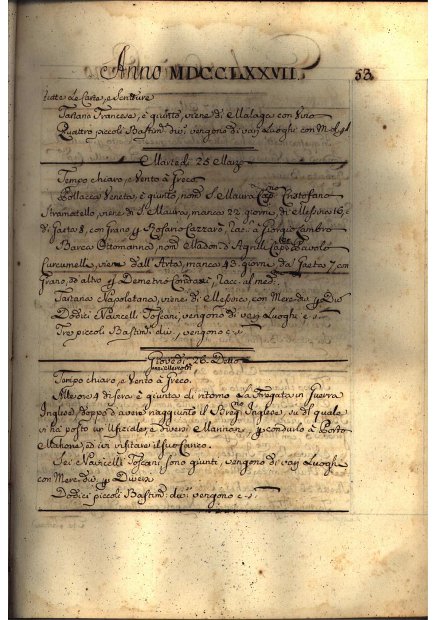 Anno MDCCLXXVII. 53
tutte le Carte, e Scritture
Tartana Francese, è giunta, viene di Malaga con Vino
Quattro piccoli Bastim. div. vengono di varj Luoghi con M. d. p.
Martedi 25 Marzo
Tempo chiaro, e Vento à Greco
Pollacca Veneta, è giunta, nom. S. Maura Cap. Cristofano
Stramatello, viene di S. Maura, manca 22 giorni, di Messina 16,
di Gaeta 8, con Grano p. Rosario Cazzaro, racc. à Giorgio Zambro
Barca Ottomanna, nom. Madon. di
viene dall' Arta, manca 43 giorni da Gaeta 7 con
Grano, ed altro p. Demetrio racc. al med.
Tartana Napoletana, viene di Messina, con Merc. div. p. Div.
Dodici Navicelli Toscani, vengono di varj Luoghi e s.
Tre piccoli Bastim. div., vengono e s.
Giovedi 26 Detto
Mercoledi
Tempo chiaro, e Vento à Greco.
Alle ore 4 di sera è giunta di ritorno La Fregata in Guerra
Inglese, doppo d'avere raggiunto il Brig. Inglese, su del quale
vi ha posto un Ufficiale, e diversi Marinari, p. condurlo à Porto
Mahone, ed ivi visitare il suo Carico.
Sei Navicelli Toscani sono giunti, vengono di varj Luoghi
con Merc. div. p. Diversi
Dodici piccoli Bastim. div. vengono e s.